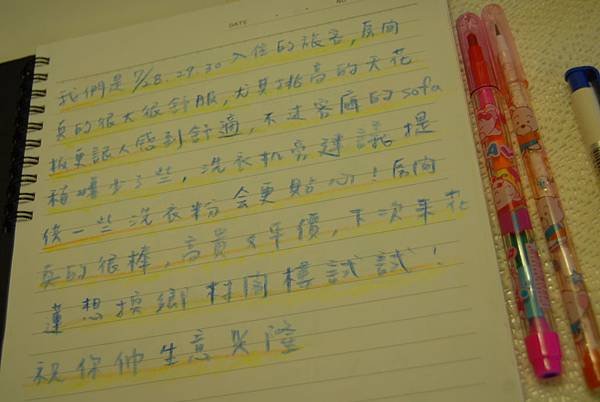 DATE
NO
我們是 7/28.29.30 入住的旅客,房間
真的很大很舒服,尤其挑高的天花
板更讓人感到舒適,不過客廳的sofa
稍嫌少了些,洗衣机旁建議提
供一些洗衣粉会更貼心!房间
真的很棒,高貴又平價,下次來花
蓮想換鄉村閣樓試試!
祝你們生意興隆